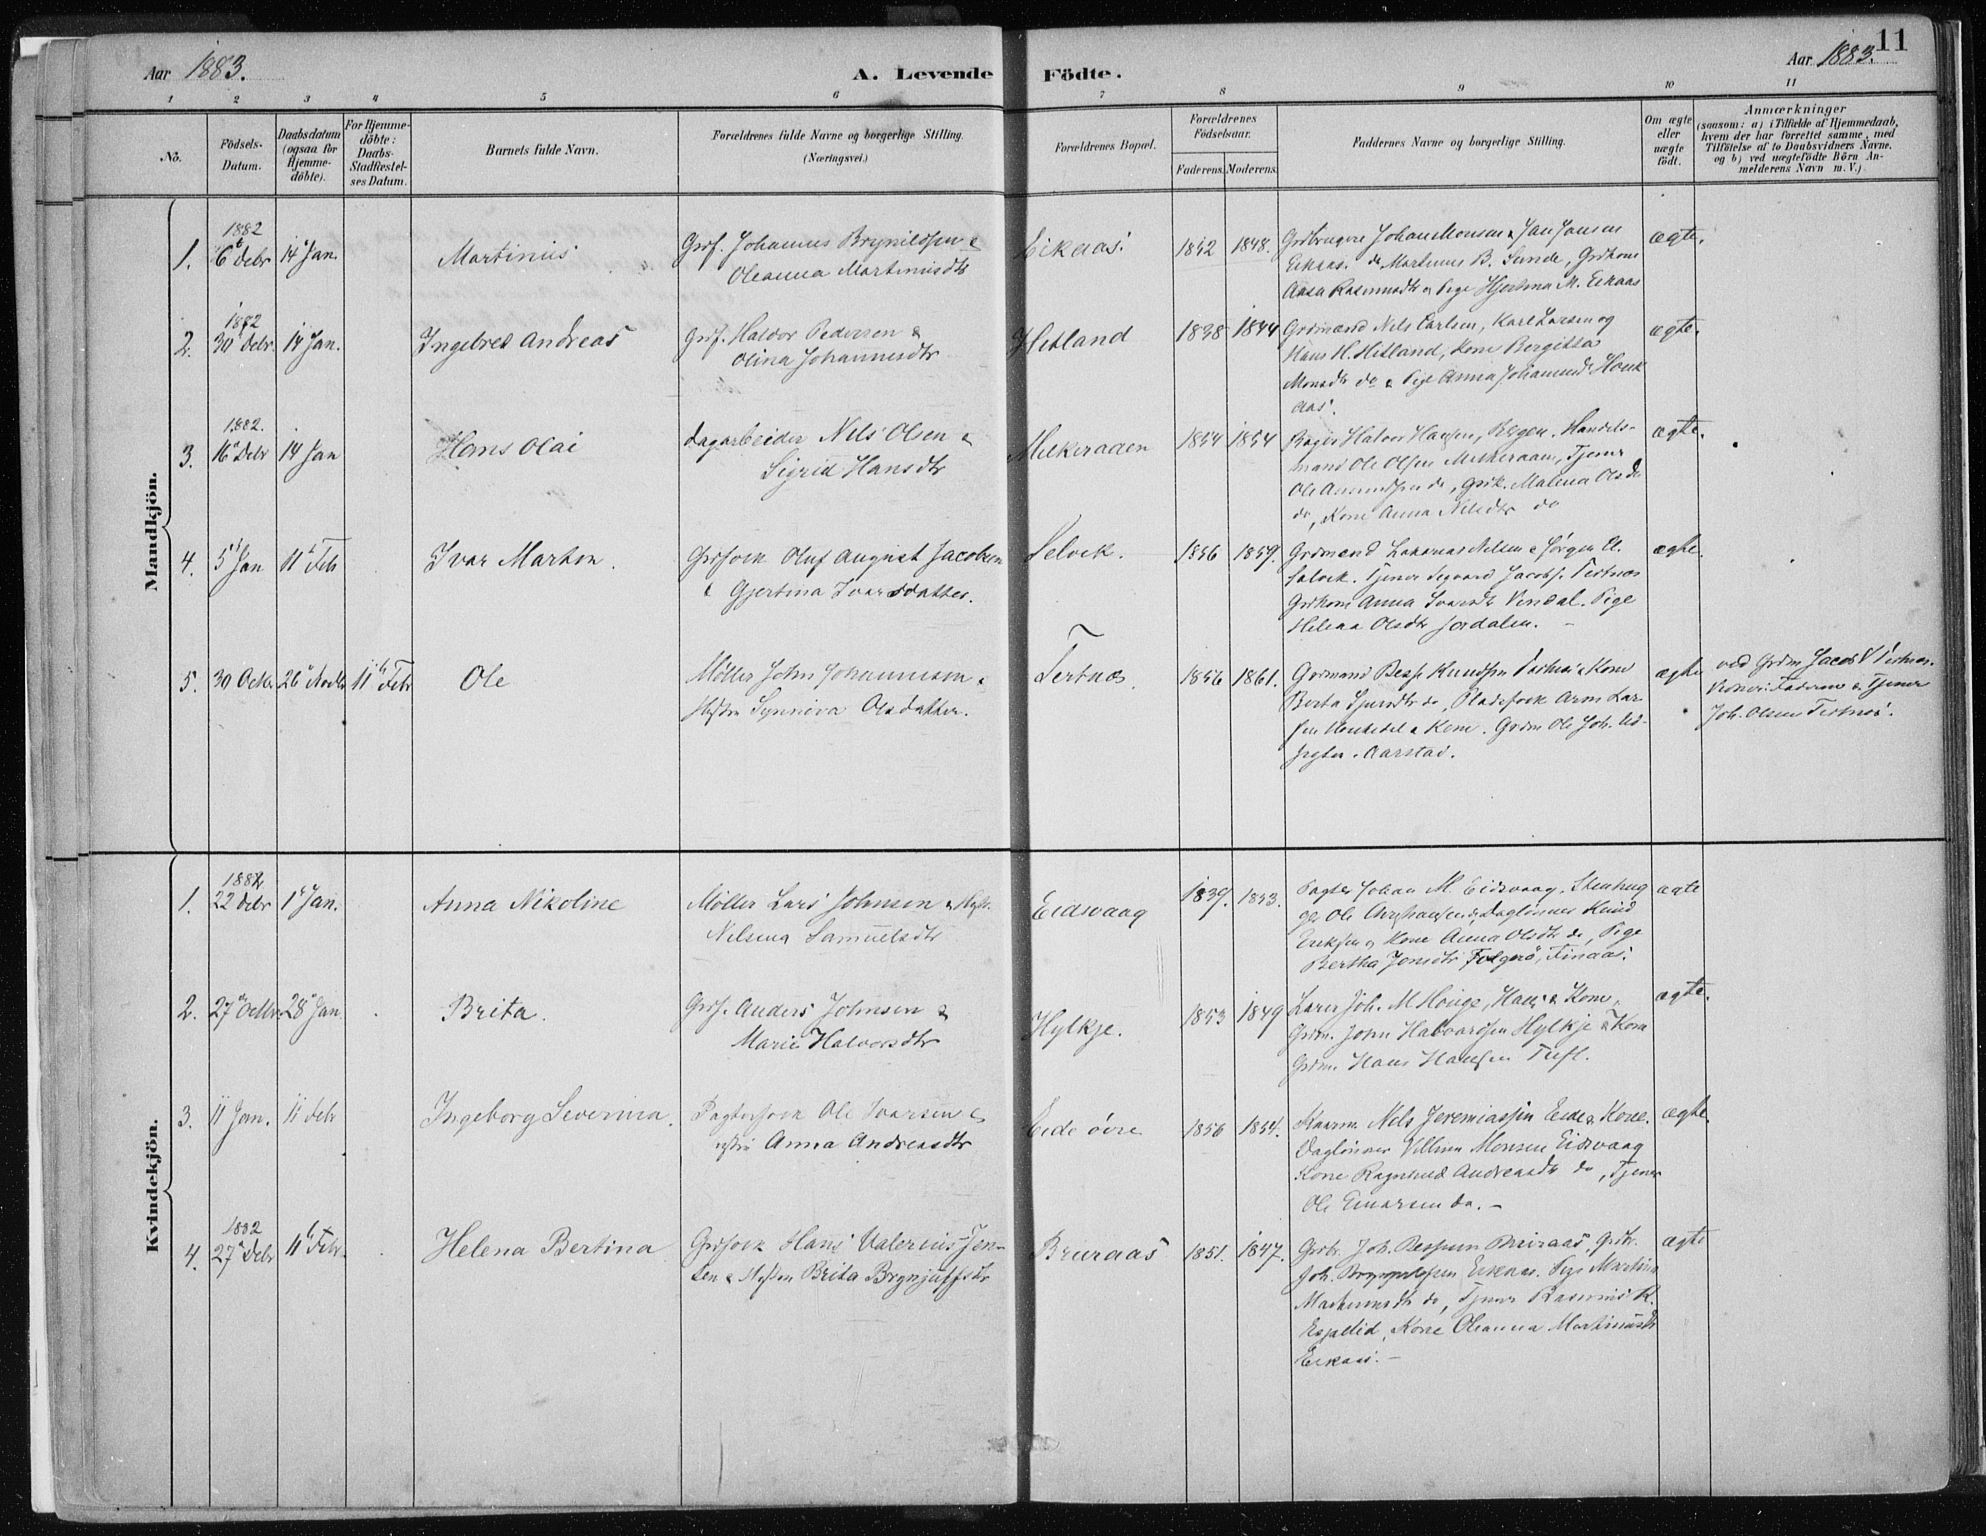 Aar 1883.
A. Levende Födte.
Aar 1883.
11
1 2 3 4 5 6 7 8 9 10 11
No.
Födsels-
Datum.
Daabsdatum
(ogsaa for
Hjemme-
döbte).
For Hjemme-
döbte:
Daabs-
Stadfæstel-
ses Datum.
Barnets fulde Navn.
Forældrenes fulde Navne og borgerlige Stilling.
(Næringsvei.)
Forældrenes Bopæl.
Forældrenes
Födselsaar.
Faderens. Moderens.
Faddernes Navne og borgerlige Stilling.
Om ægte
eller
uægte
födt.
Anmærkninger
(saasom: a) i Tilfælde af Hjemmedaab,
hvem der har forrettet samme, med
Tilföielse af to Daabsvidners Navne.
og b) ved uægtefödte Börn An-
melderens Navn m. V.)
Mandkjön.
1882
1. 6 Debr 14 Jan. Martinus
Grdf. Johannes Brynildsen &
Oleanna Martinusdtr
Eikaas. 1852 1848.
Grdbrugere Johan Monsen & Jan Jansen
Eikaas. do Martinus B. Sunde, Grdkone
Aasa Rasmusdtr & Pige Hjertina M. Eikaas
ægte.
1882
2. 30 Debr. 14 Jan. Ingebret Andreas
Grdf. Haldor Pedersen &
Olina Johannesdtr
Hetland 1838 1844
Grdmand Nils Carlsen, Karl Larsen og
Hans H. Hetland, Kone Bergitta
Monsdtr do & Pige Anna Johannesdtr Hauk
aas.
ægte.
1882.
3. 16 Debr 14 Jan Hans Olai
Dagarbeider Nils Olsen &
Sigrid Hansdtr
Melkeraaen 1854 1854
Bager Halvor Hansen, Bergen. Handels-
mand Ole Olsen Melkeraaen, Tjener
Ole Amundsen do, Grdk. Malena Olsdtr
do, Kone Anna Nilsdtr do
ægte.
4. 5 Jan 11 Feb Ivar Marton.
Grdfolk Oluf August Jacobsen
& Gjertina Ivarsdatter.
Selvik. 1856 1859.
Grdmand Zakarias Nilsen & Jørgen
Selvik. Tjener Sigvard Jacobs. Tertnæs
Grdkone Anna Ivarsdtr Vindal. Pige
Helena Olsdtr Jordalen. –
ægte.
5. 30 Octbr 26 Novbr 11 Febr Ole
Møller John Johannesen &
Hustru Synneva Olsdatter.
Tertnæs 1856 1861.
Grdmand Knudsen Tertnæs & Kone
Berta do, Pladsfolk Arne Lar
sen & Kone. Grdm Ole Joh.
Aarstad.
ægte
ved Grdm Jacob Tertnæs.
Vidner: Faderen & Tjener
Joh. Olsen Tertnæs.
Kvindekjön.
1882
1. 22 Debr 1 Jan. Anna Nikoline
Møller Lars Johnsen & Hustr.
Nilsina Samuelsdtr
Eidsvaag 1839. 1853.
Pagter Johan M. Eidsvaag. Stenhug
ger Ole do, Daglønner Knud
Eriksen & Kone Anna Olsdtr do, Pige
Bertha Jonsdtr Folgerø, Finaas.
ægte
2. 27 Octbr 28 Jan. Brita.
Grdf. Anders Johnsen &
Marie Halvorsdtr
Hylkje. 1853 1849
Lærer Joh. M Houge, Haus & Kone,
Grdm. John Halvorsen Hylkje & Kone
Grdm. Hans Hansen
ægte.
3. 11 Jan. 11 Febr Ingeborg Severina.
Pagterfolk Ole Ivarsen &
Hustru Anna Andreasdtr
Eide øvre 1856 1854.
Nils Jeremiassen Eide & Kone.
Daglønner Villum Monsen Eidsvaag
Kone Ragnhild Andreasdtr do, Tjener
Ole Einarsen do. –
ægte.
1882
4. 27 Debr 11 Feb. Helena Bertina
Grdfolk Hans Valerius Jen-
sen & Hustru Brita Brynjulfsdtr
Bruraas 1851. 1847.
Grdbr. Joh. Bruraas, Grdbr.
Joh. Brynildsen Eikaas. Pige Martina
Martinusdtr do, Tjener Rasmus R.
Espelid, Kone Oleanna Martinusdtr
Eikaas. –
ægte